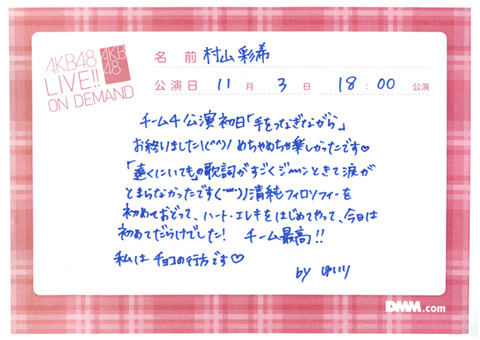 AKB48
LIVE!!
ON DEMAND
AKB
48
名 前 村山彩希
公演日 11月 3日 18:00 公演
チーム4公演初日「手をつなぎながら」
お終りました\(^^)/ めちゃめちゃ楽しかったです♡
「遠くにいても」の歌詞がすごくジーンときて涙が
とまらなかったです 清純フィロソフィーを
初めておどって、ハート・エレキをはじめてやって、今日は
初めてだらけでした! チーム最高!!
私は チョコの行方です♡
by ゆいり
DMM.com